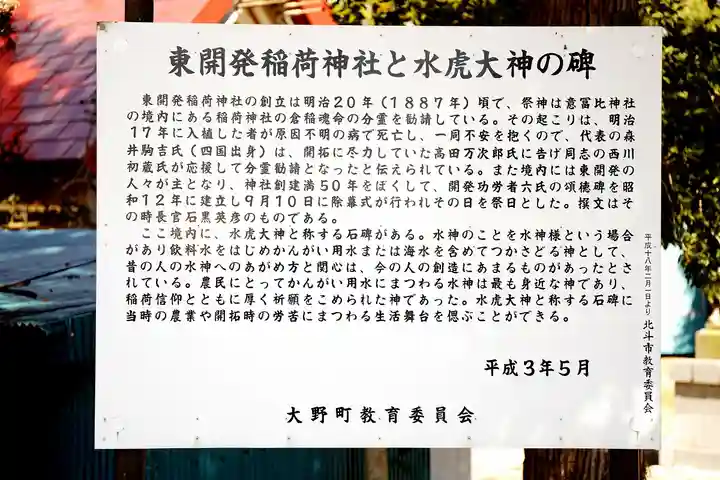 東開発稲荷神社と水虎大神の碑
東開発稲荷神社の創立は明治20年(1887年)頃で、祭神は意冨比神社
の境内にある稲荷神社の倉稲魂命の分霊を勧請している。その起こりは、明治
17年に入植した者が原因不明の病で死亡し、一同不安を抱くので、代表の森
井駒吉氏(四国出身)は、開拓に尽力していた高田万次郎氏に告げ同志の西川
初蔵氏が応援して分霊勧請となったと伝えられている。また境内には東開発の
人々が主となり、神社創建満50年をぼくして、開発功労者六氏の頌徳碑を昭
和12年に建立し9月10日に除幕式が行われその日を祭日とした。撰文はそ
の時長官石黒英彦のものである。
ここ境内に、水虎大神と称する石碑がある。水神のことを水神様という場合
があり飲料水をはじめかんがい用水または海水を含めてつかさどる神として、
昔の人の水神へのあがめ方と関心は、今の人の創造にあまるものがあったとさ
れている。農民にとってかんがい用水にまつわる水神は最も身近な神であり、
稲荷信仰とともに厚く祈願をこめられた神であった。水虎大神と称する石碑に
当時の農業や開拓時の労苦にまつわる生活舞台を偲ぶことができる。
平成3年5月
大野町教育委員会
平成十八年二月一日より 北斗市教育委員会